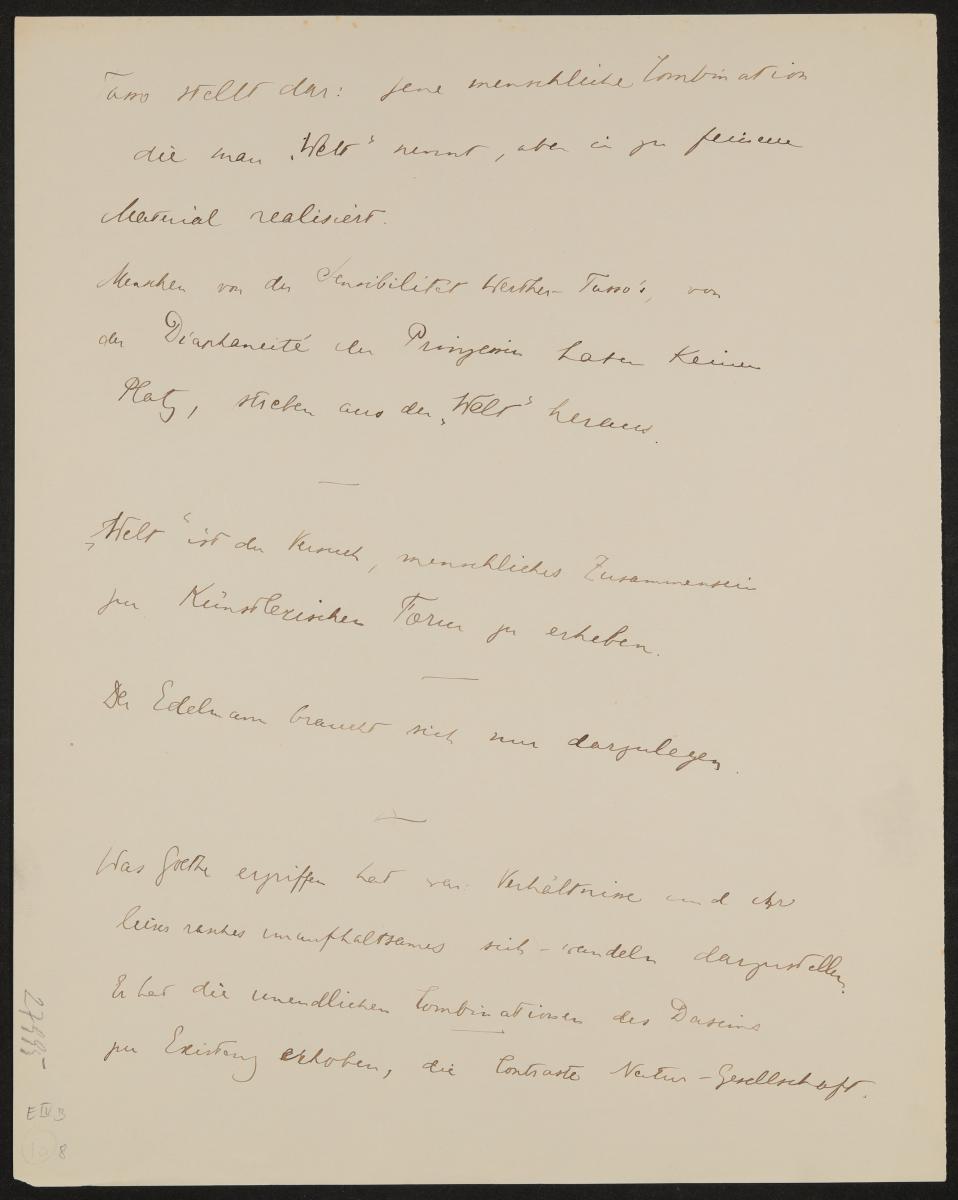 Tasso stellt dar: jene menschliche Combination
die man „Welt“ nennt, aber in zu feinem
Material realisiert.
Menschen von der Sensibilität Werther-Tasso's, von
der Diaphaneité der Prinzessin haben keinen
Platz, streben aus der „Welt“ heraus.
„Welt“ ist der Versuch, menschliches Zusammensein
zur Künstlerischen Form zu erheben.
Der Edelmann braucht sich nur darzulegen.
Was Goethe ergriffen hat war: Verhältnisse und ihr
leises rasches unaufhaltsames sich-wandeln darzustellen.
Er hat die unendlichen Combinationen des Daseins
zur Existenz erhoben, die Contraste Natur-Gesellschaft.
E IV B
10 8